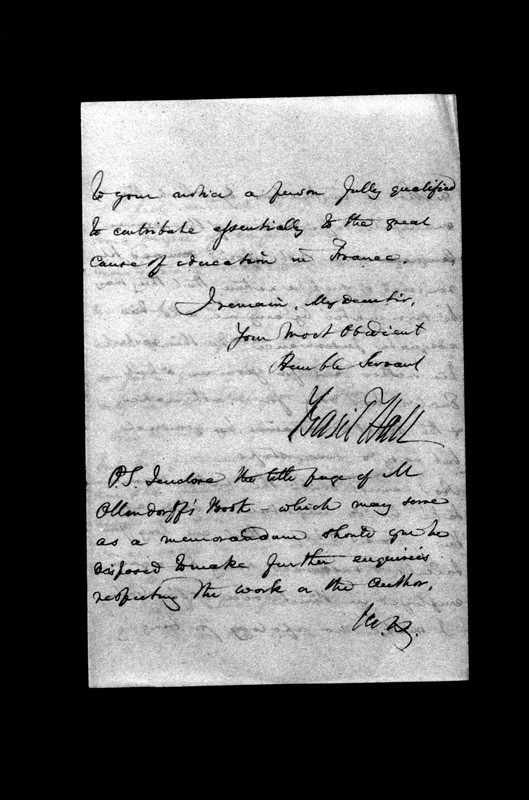 to your notice a person fully qualified
to contribute essentially to the great
cause of education in France.
I remain, My dear Sir,
Your Most Obedient
Humble Servant
Basil Hall
P.S. I enclose the title page of M
Ollendorff's Book – which may serve
as a memorandum should you be
disposed to make further enquiries
respecting the work or the author.